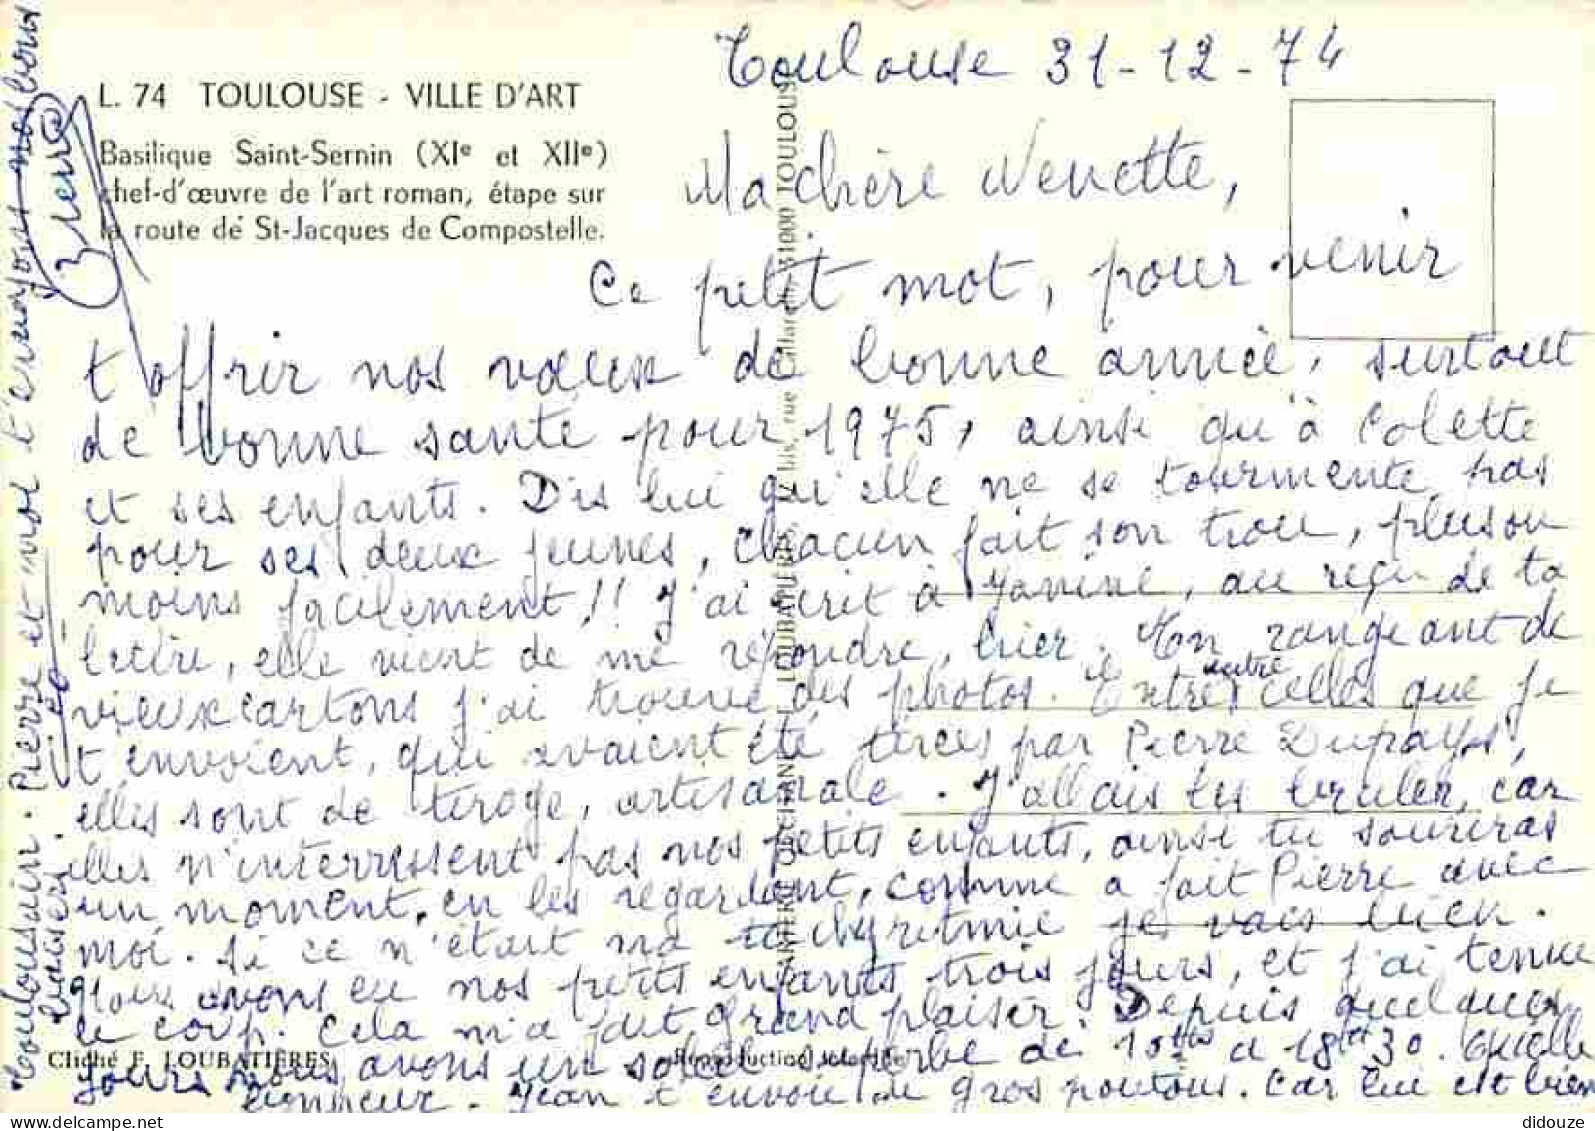 Toulouse 31-12-74
L. 74 TOULOUSE - VILLE D'ART
Basilique Saint-Sernin (XIe et XIIe)
chef-d'œuvre de l'art roman, étape sur
la route de St-Jacques de Compostelle.
Ma chère Nenette,
Ce petit mot, pour venir
t offrir nos vœux de bonne année, surtout
de bonne santé pour 1975, ainsi qu'à Colette
et ses enfants. Dis lui qu'elle ne se tourmente pas
pour ses deux jeunes, chacun fait son trou, plus ou
moins facilement!! J'ai écrit à Yanine, au reçu de ta
lettre, elle vient de me répondre, hier. En rangeant de
vieux cartons j'ai trouvé des photos. Entre autre celles que je
t envoient, qui avaient été tirées par Pierre Dupays,
elles sont de tirage, artisanale. J'allais les bruler, car
elles n'interressent pas nos petits enfants, ainsi tu souriras
un moment, en les regardant, comme a fait Pierre avec
moi. Si ce n'était ma je vais bien.
Nous avons eu nos petits enfants trois jours, et j'ai tenue
le coup. Cela m'a fait grand plaisir. Depuis quelques
jours nous avons un soleil superbe de 10h a 18h30. Quelle
bonheur. Jean t envoie de gros poutous. Car lui est bien
toulousain. Pierre et moi t'envoyons nos bons
baisers.
Pierre
Cliché F. LOUBATIÈRES
31000 TOULOUSE
didouze